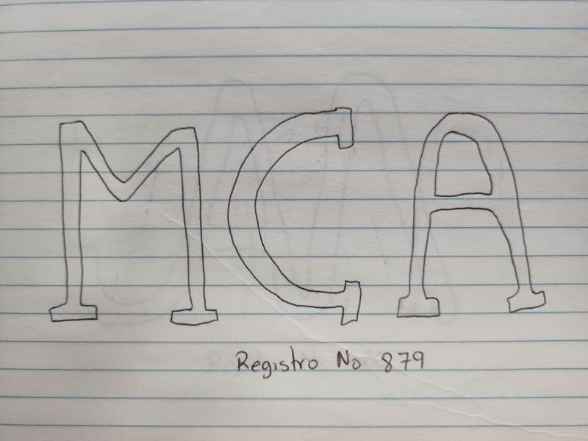 MCA
Registro No 879